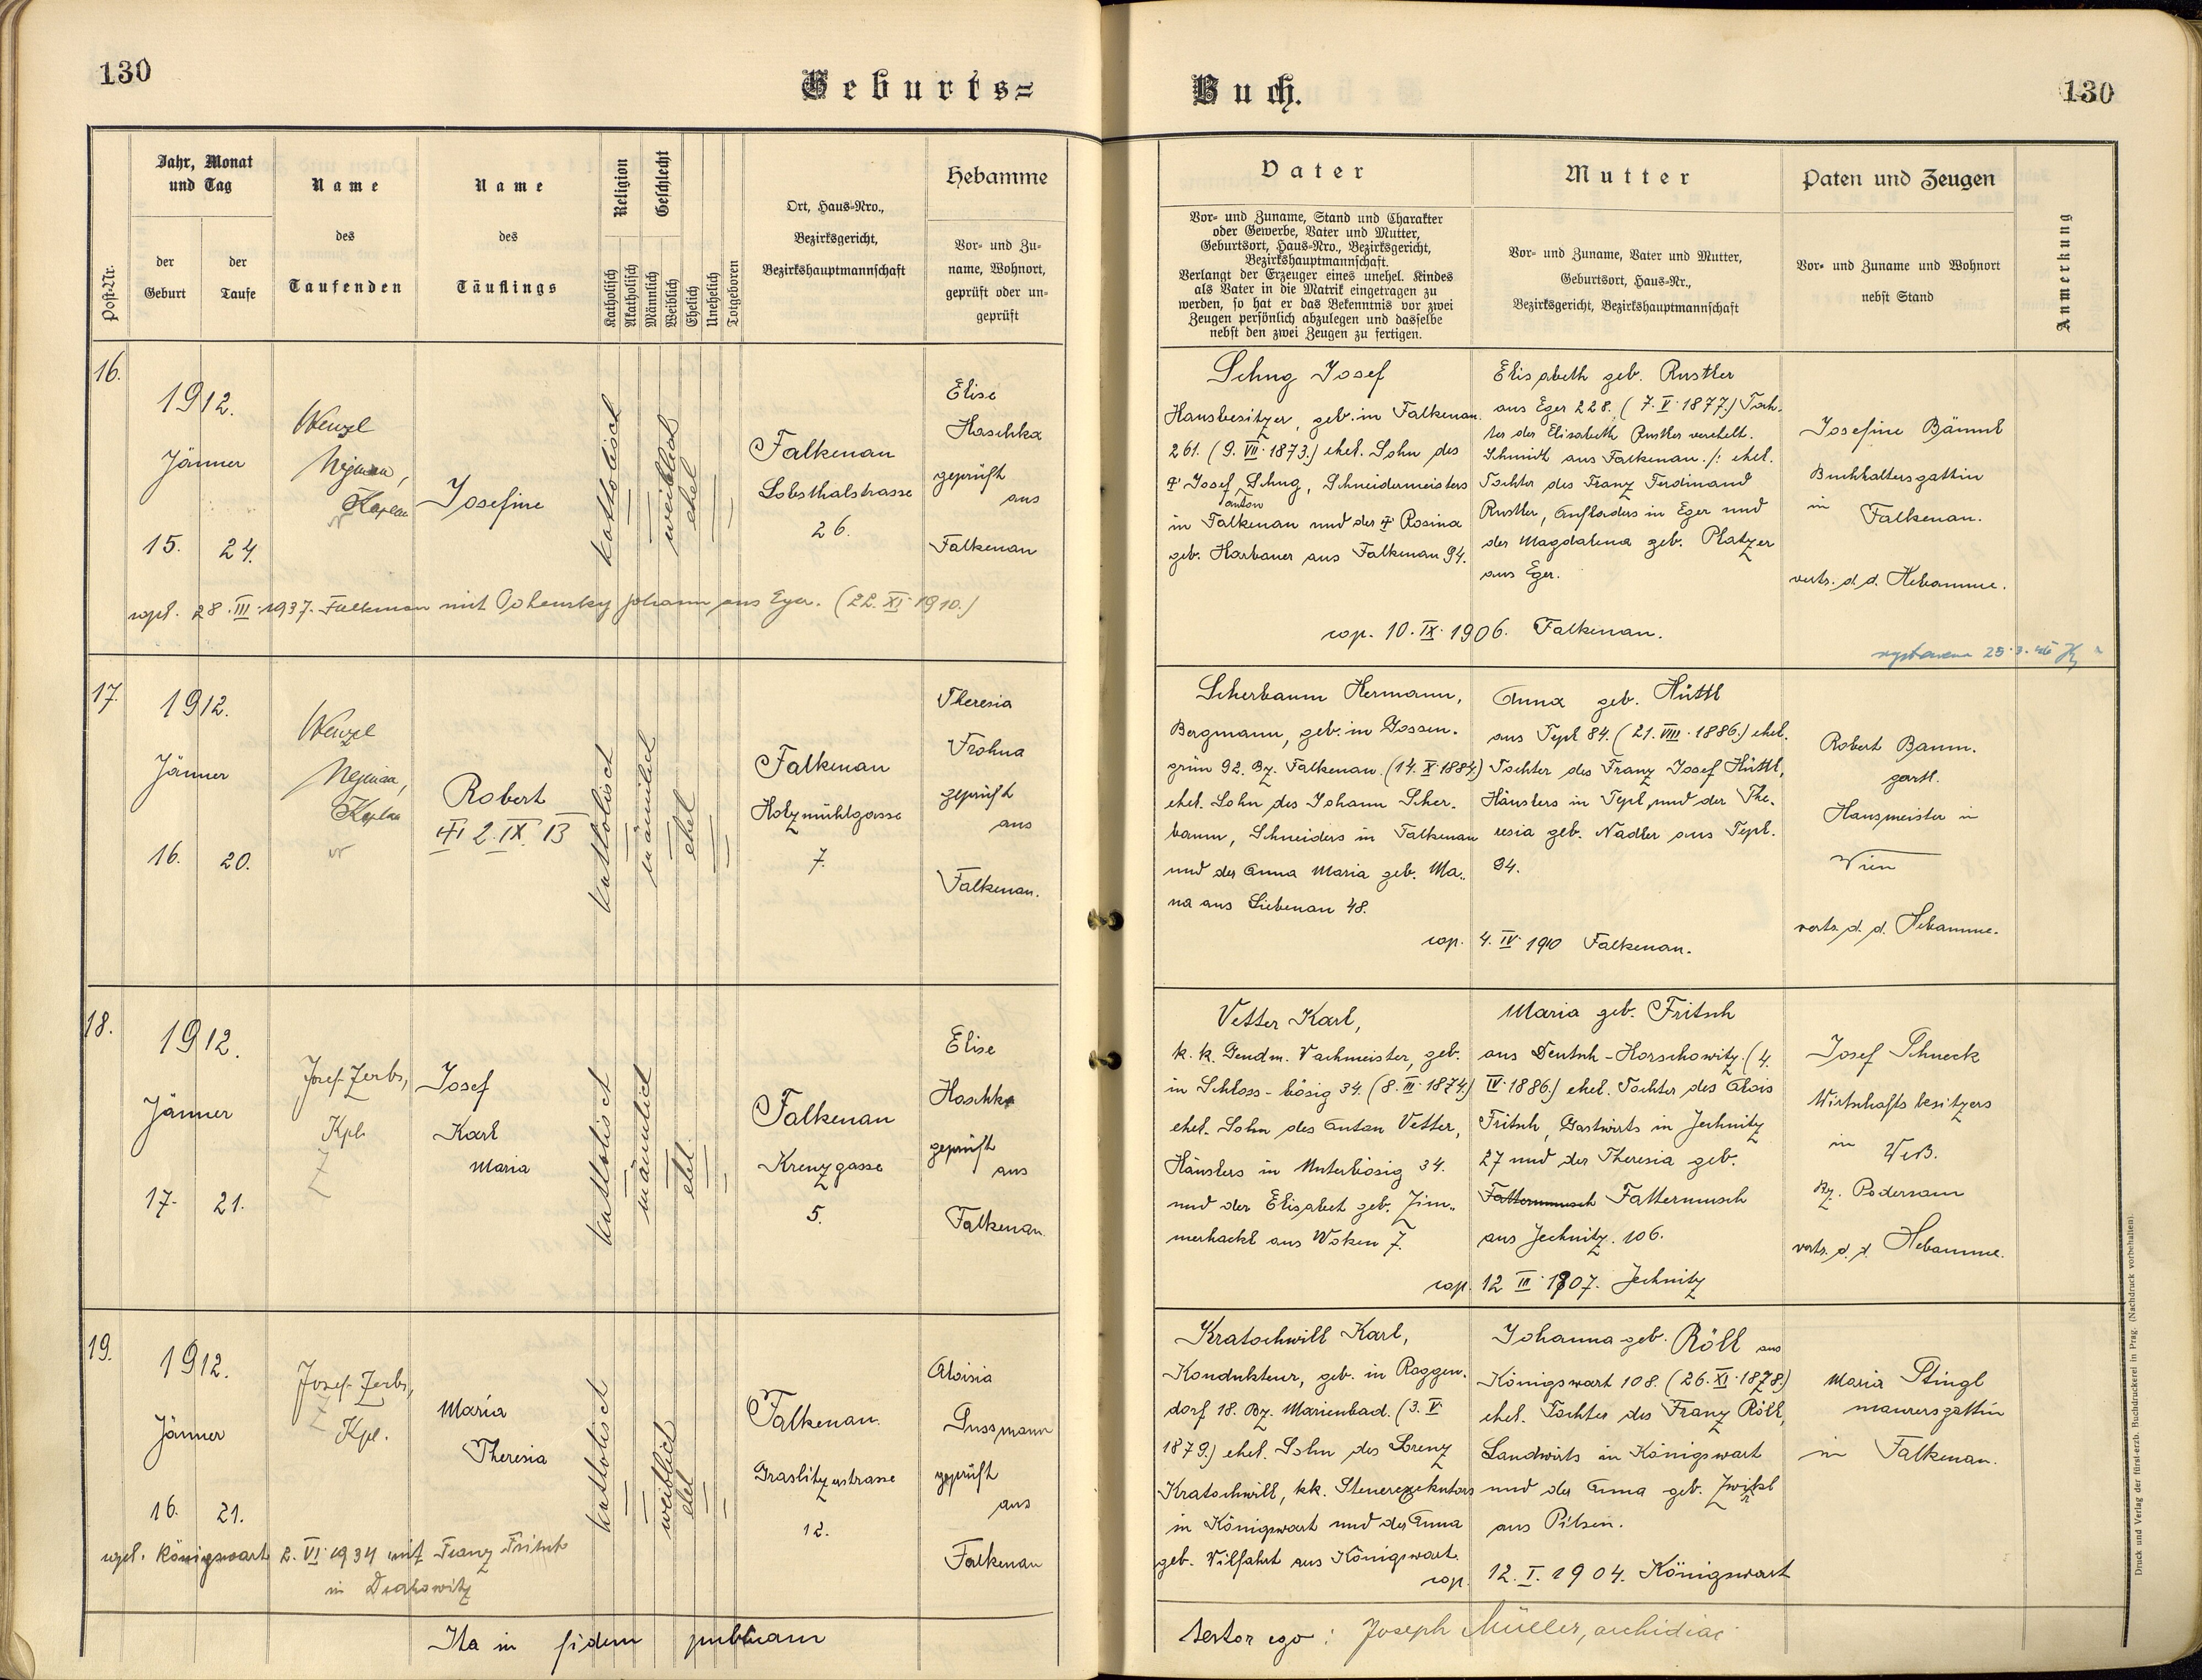 130
Geburts=
Buch.
130
Post-Nr.
Jahr, Monat
und Tag
der
Geburt
der
Taufe
Name
des
Taufenden
Name
des
Täuflings
Religion
Katholisch
Akatholisch
Geschlecht
Männlich
Weiblich
Ehelich
Unehelich
Totgeboren
Ort, Haus-Nro.,
Bezirksgericht,
Bezirkshauptmannschaft
Hebamme
Vor- und Zu-
name, Wohnort,
geprüft oder un-
geprüft
Vater
Vor- und Zuname, Stand und Charakter
oder Gewerbe, Vater und Mutter,
Geburtsort, Haus-Nro., Bezirksgericht,
Bezirkshauptmannschaft.
Verlangt der Erzeuger eines unehel. Kindes
als Vater in die Matrik eingetragen zu
werden, so hat er das Bekenntnis vor zwei
Zeugen persönlich abzulegen und dasselbe
nebst den zwei Zeugen zu fertigen.
Mutter
Vor- und Zuname, Vater und Mutter,
Geburtsort, Haus-Nr.,
Bezirksgericht, Bezirkshauptmannschaft
Paten und Zeugen
Vor- und Zuname und Wohnort
nebst Stand
Anmerkung
16.
1912.
Jänner
15. 24.
Wenzl
Kaplan
Josefine
katholisch
weiblich
ehel
Falkenau
Lobsthalstrasse
26.
Elise
Haschka
geprüft
aus
Falkenau
Schug Josef
Hausbesitzer, geb. in Falkenau
261. (9. VII. 1873.) ehel. Sohn des
† Josef Schug, Schneidermeisters
Anton
in Falkenau und der † Rosina
geb. Harbauer aus Falkenau 94.
Elisabeth geb. Rustler
aus Eger 228. (7. V. 1877.) Toch-
ter der Elisabeth Rustler verehelt.
Schmidt aus Falkenau. /: ehel.
Tochter des Franz Ferdinand
Rustler, Aufladers in Eger und
der Magdalena geb. Platzer
aus Eger.
cop. 10. IX. 1906. Falkenau.
Josefine Bäuml
Buchhaltersgattin
in Falkenau.
verts. d. d. Hebamme.
copl. 28. III. 1937. Falkenau mit Johann aus Eger. (22. XI. 1910.)
17.
1912.
Jänner
16. 20.
Wenzl
Kaplan
Robert
† 2. IX. 13
katholisch
männlich
ehel
Falkenau
Holzmühlgasse
7.
Theresia
Frohna
geprüft
aus
Falkenau.
Scherbaum Hermann,
Bergmann, geb. in Gossen-
grün 92. Bz. Falkenau. (14. X. 1884.)
ehel. Sohn des Johann Scher-
baum, Schneiders in Falkenau
und der Anna Maria geb. Ma-
na aus Liebenau 48.
Anna geb. Hüttl
aus Tepl 84. (21. VIII. 1886.) ehel.
Tochter des Franz Josef Hüttl,
Häuslers in Tepl und der The-
resia geb. Nadler aus Tepl.
94.
cop. 4. IV. 1910 Falkenau.
Robert Baum-
gartl.
Hausmeister in
Wien
verts. d. d. Hebamme.
18.
1912.
Jänner
17. 21.
Josef Zerbs,
Kpl.
Josef
Karl
Maria
katholisch
männlich
ehel
Falkenau
Kreuzgasse
5.
Elise
Haschka
geprüft
aus
Falkenau
Vetter Karl,
k. k. Gendm. Wachmeister, geb.
in Schloss-bösig 34. (8. III. 1874.)
ehel. Sohn des Anton Vetter,
Häuslers in Unterbösig 34.
und der Elisabet geb. Zim-
merhackl aus Woken 7.
Maria geb. Fritsch
aus Deutsch-Horschowitz. (4.
IV. 1886.) ehel. Tochter des Alois
Fritsch, Gastwirts in Jechnitz
27 und der Theresia geb.
Fatternusch Fatternusch
aus Jechnitz. 106.
cop. 12. III. 1907. Jechnitz
Josef Schneck
Wirtschaftsbesitzers
in Weß.
Bz. Podersam
verts. d. d. Hebamme.
19.
1912.
Jänner
16. 21.
Josef Zerbs,
Kpl.
Maria
Theresia
katholisch
weiblich
ehel
Falkenau.
Graslitzerstrasse
12.
Aloisia
Sussmann
geprüft
aus
Falkenau
Kratochwill Karl,
Kondukteur, geb. in Roggen-
dorf 18. Bz. Marienbad. (3. V.
1879.) ehel. Sohn des Lorenz
Kratochwill, kk. Steuerexekutors
in Königswart und der Anna
geb. Vilfahrt aus Königswart.
Johanna geb. Röll aus
Königswart 108. (26. XI. 1878.)
ehel. Tochter des Franz Röll,
Landwirts in Königswart
und der Anna geb. Zwikl
aus Pilsen.
cop. 12. I. 1904. Königswart
Maria Stingl
Maurersgattin
in Falkenau.
copl. Königswart 2. VI. 1934 mit Franz Fritsch
in
Ita in fidem publicam
testor ego: Joseph Müller, archidiac.
Druck und Verlag der fürst-erzb. Buchdruckerei in Prag. (Nachdruck vorbehalten).